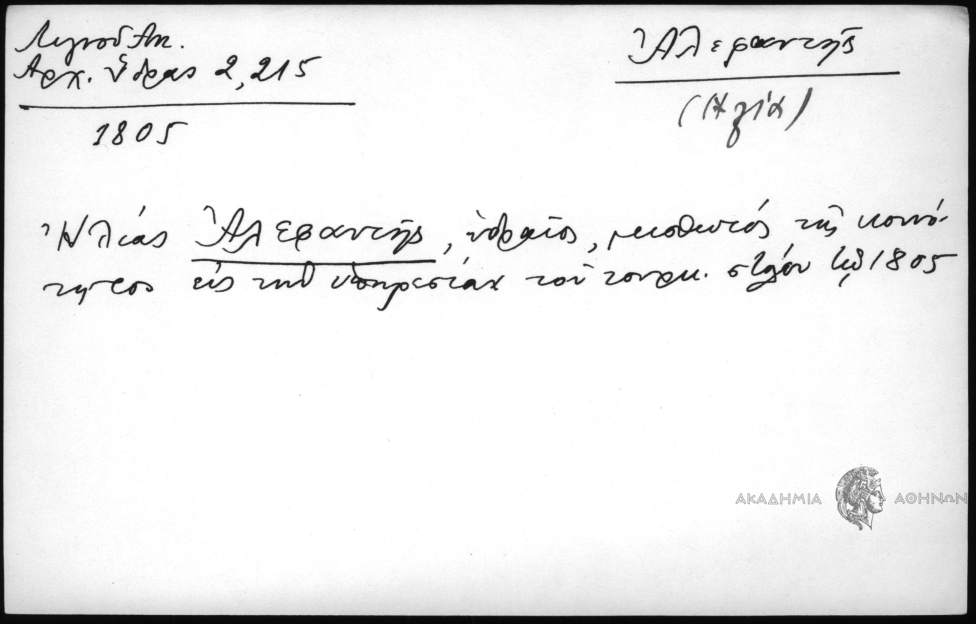 Λιγνοῦ Ἀν.
Ἀρχ. Ὕδρας 2, 215
1805
Ἀλεφαντής
(Ἠλία)
Ἠλίας Ἀλεφαντής, ὑδραῖος, μισθωτός τῆς κοινό-
τητος εἰς τὴν ὑπηρεσίαν τοῦ τουρκ. στόλου 1805
ΑΚΑΔΗΜΙΑ ΑΘΗΝΩΝ